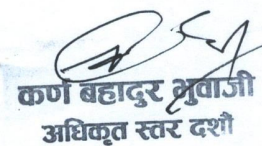 कर्ण बहादुर भुवाजी
अधिकृत स्तर दशौ